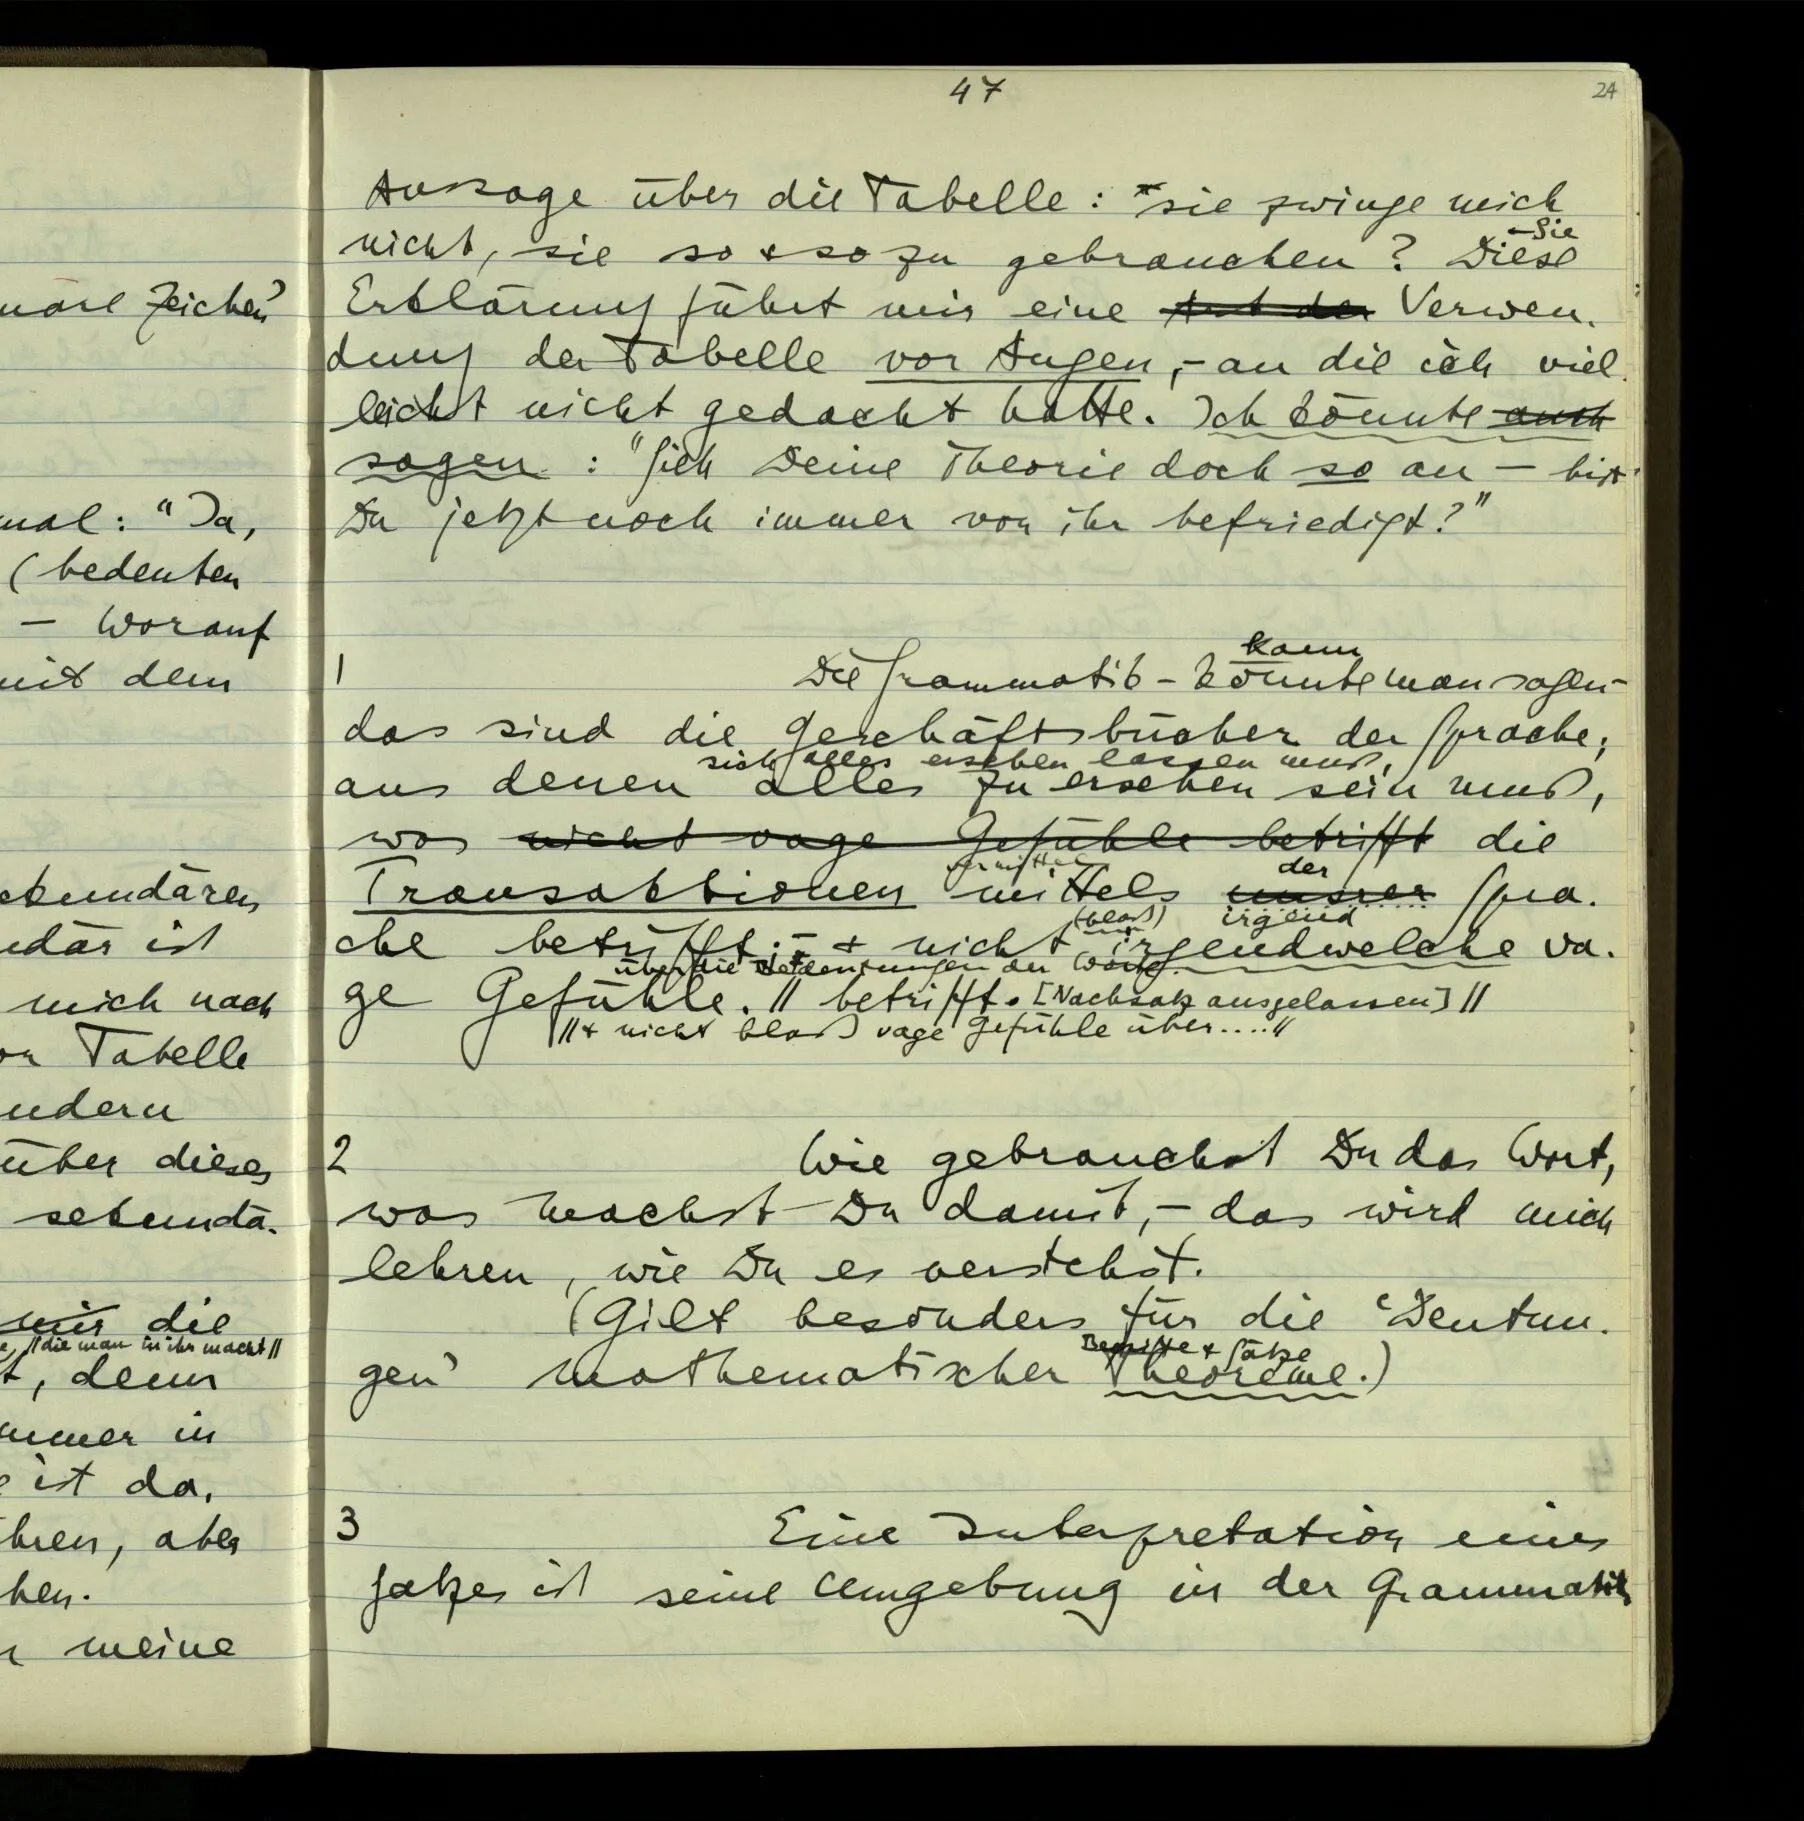 näre Zeichen'
mal: "Ja,
(bedeuten
– Worauf
mit dem
sekundären
ndär ist
mich nach
Tabelle
ndern
über dieses
sekundä-
mir die
//die man in ihr macht//
, denn
immer in
ist da,
hren, aber
hen.
meine
47
24
Aussage über die Tabelle: "sie zwinge mich
nicht, sie so & so zu gebrauchen? Diese
Sie
Erklärung führt mir eine Art der Verwen-
dung der Tabelle vor Augen, – an die ich viel-
leicht nicht gedacht hatte. Ich könnte auch
sagen: "Sieh Deine Theorie doch so an – bist
Du jetzt noch immer von ihr befriedigt?"
kann
1 Die Grammatik – könnte man sagen –
das sind die Geschäftsbücher der Sprache;
sich alles ersehen lassen muß,
aus denen alles zu ersehen sein muß,
was nicht vage Gefühle betrifft die
vermittels der
Transaktionen mittels unsrer Spra-
(bloß) irgend
che betrifft; – & nicht irgendwelche va-
über die Bedeutungen der Worte.
ge Gefühle. // betrifft. [Nachsatz ausgelassen] //
//& nicht bloß vage Gefühle über....//
2 Wie gebrauchst Du das Wort,
was machst Du damit, – das wird mich
lehren, wie Du es verstehst.
(Gilt besonders für die 'Deutun-
Begriffe & Sätze
gen' mathematischer Theoreme.)
3 Eine Interpretation eines
Satzes ist seine Umgebung in der Grammatik